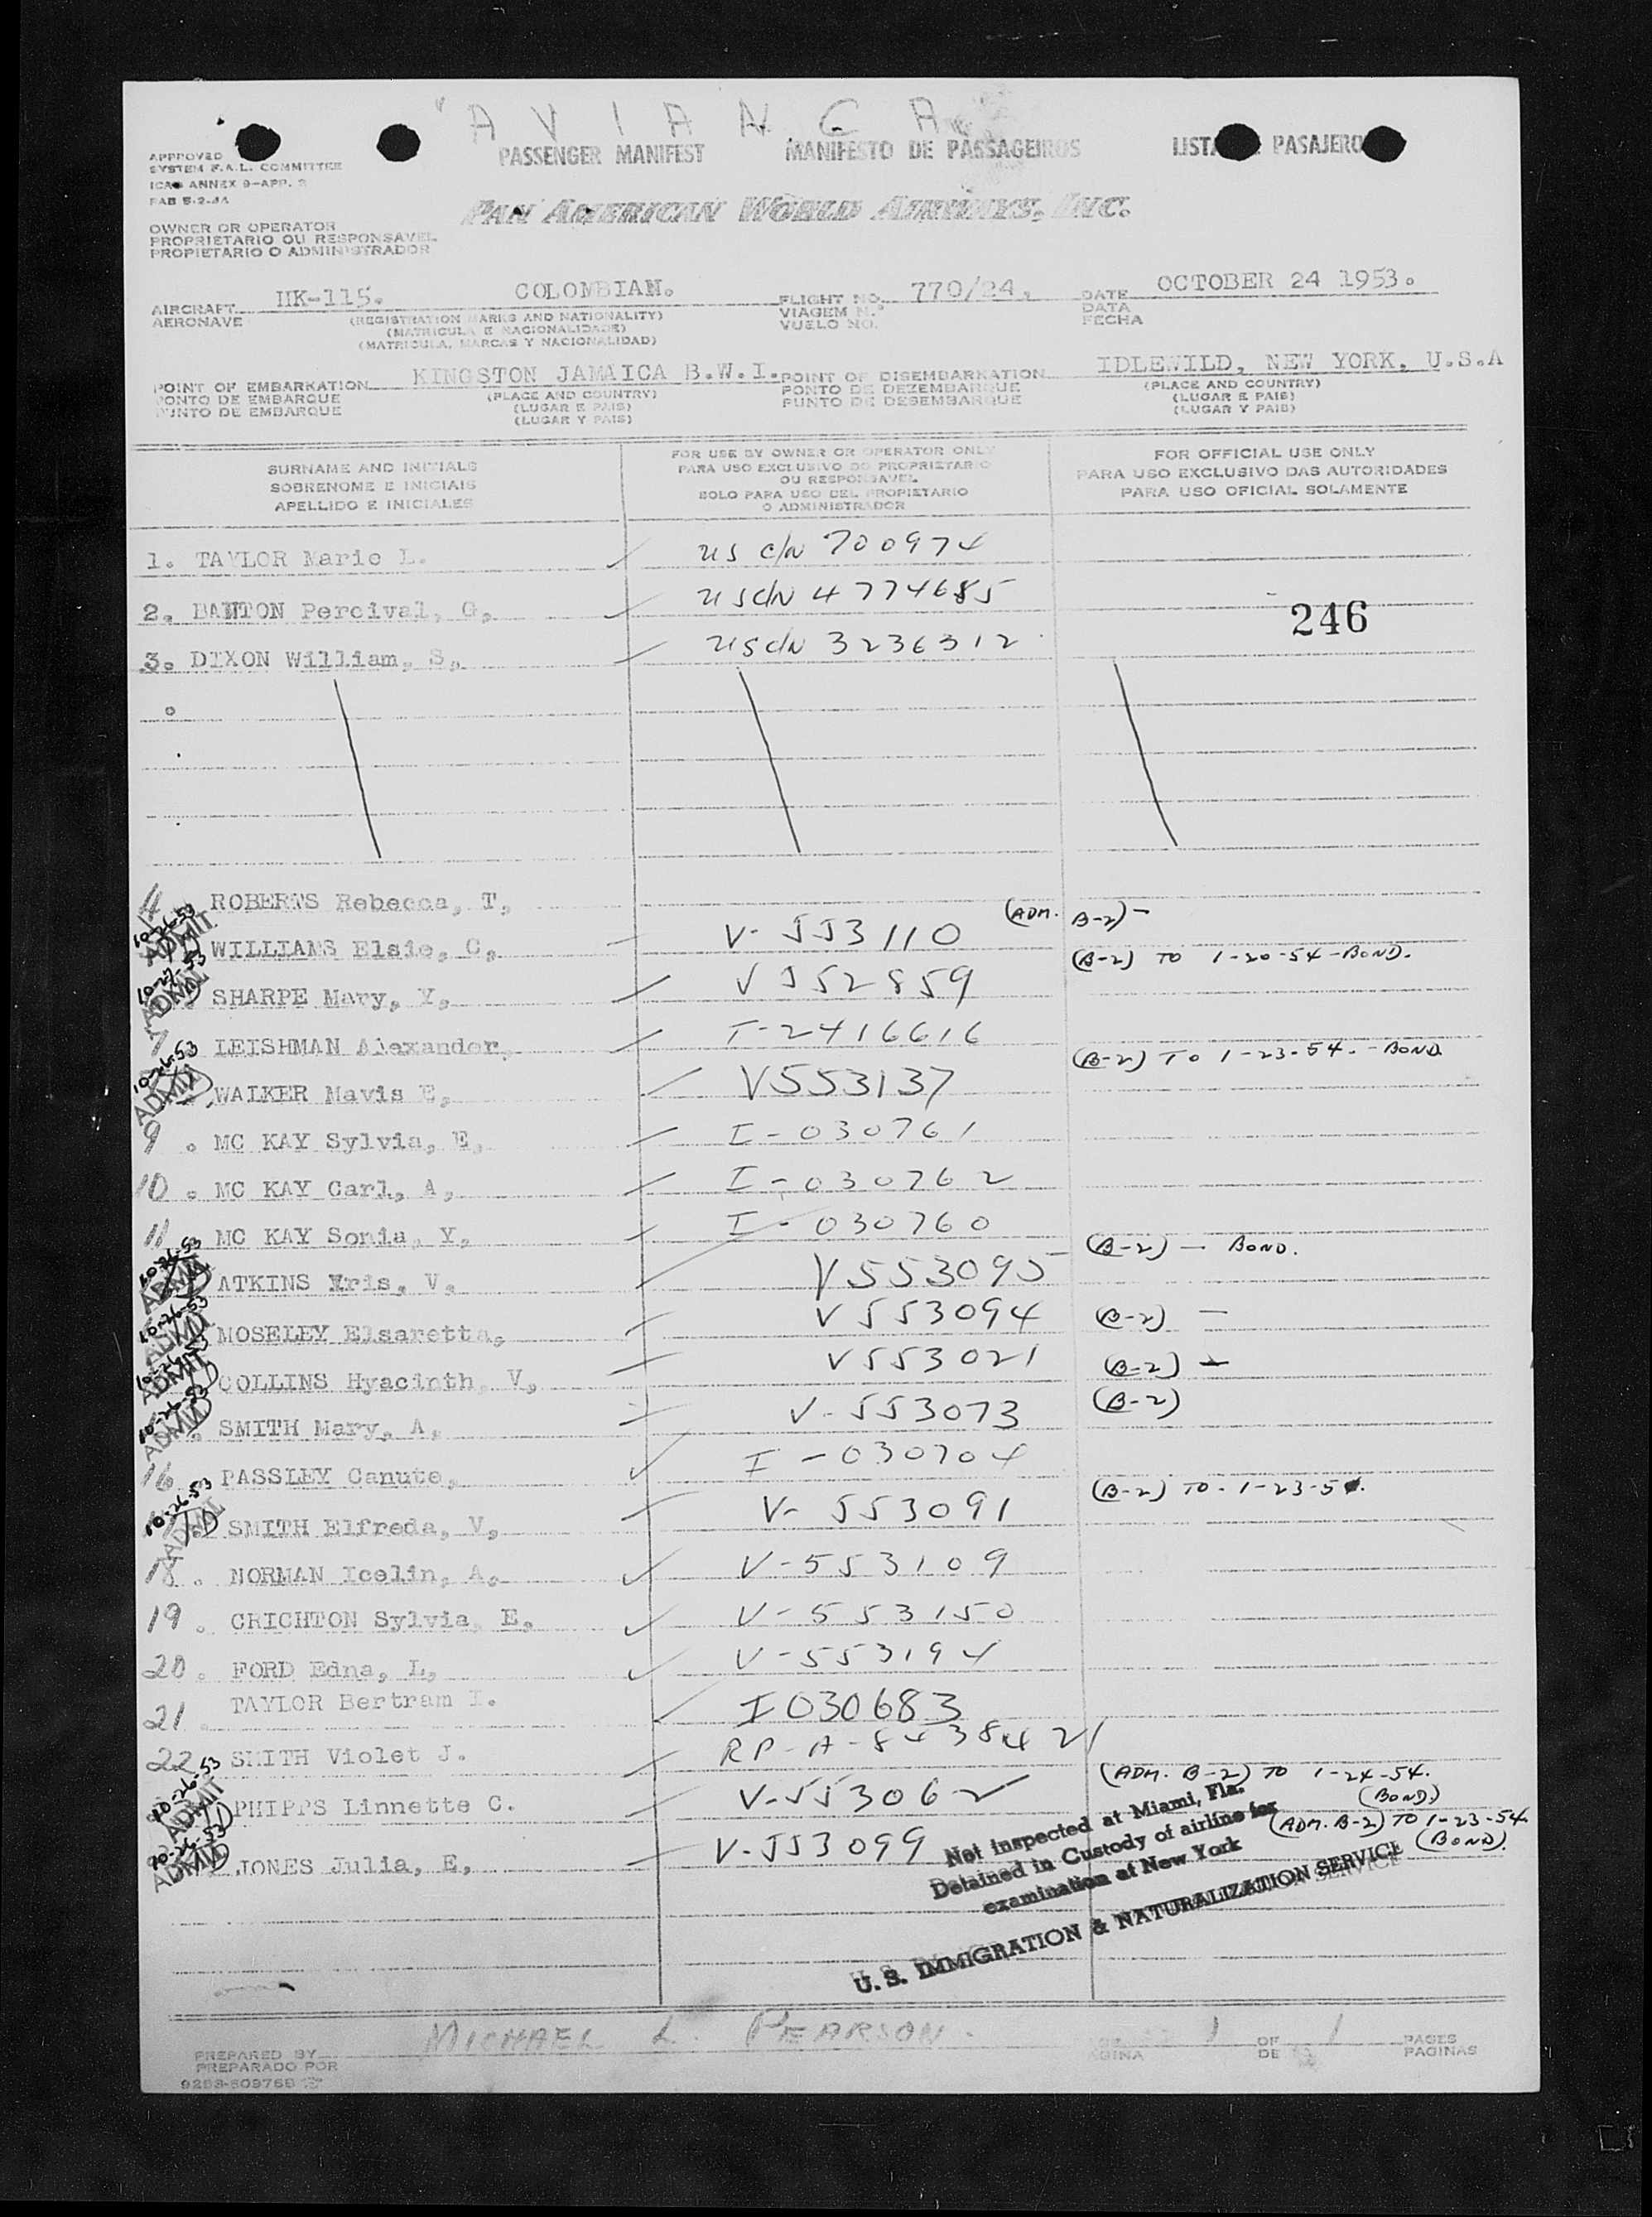 "AVIANCA"
PASSENGER MANIFEST MANIFESTO DE PASSAGEIROS LISTA PASAJERO
APPROVED
SYSTEM F.A.L. COMMITTEE
ICAO ANNEX 9-APP. 
PAB 5-2-44
PAN AMERICAN WORLD AIRWAYS, INC.
OWNER OR OPERATOR
PROPRIETARIO OU RESPONSAVEL
PROPIETARIO O ADMINISTRADOR
AIRCRAFT HK-115. COLOMBIAN. FLIGHT NO. 770/24. DATE OCTOBER 24 1953.
AERONAVE (REGISTRATION MARKS AND NATIONALITY) VIAGEM N.º DATA
(MATRICULA E NACIONALIDADE) VUELO NO. FECHA
(MATRICULA, MARCAS Y NACIONALIDAD)
POINT OF EMBARKATION KINGSTON JAMAICA B.W.I. POINT OF DISEMBARKATION IDLEWILD, NEW YORK, U.S.A
PONTO DE EMBARQUE (PLACE AND COUNTRY) PONTO DE DEZEMBARQUE (PLACE AND COUNTRY)
PUNTO DE EMBARQUE (LUGAR E PAIS) PUNTO DE DESEMBARQUE (LUGAR E PAIS)
(LUGAR Y PAIS) (LUGAR Y PAIS)
SURNAME AND INITIALS FOR USE BY OWNER OR OPERATOR ONLY FOR OFFICIAL USE ONLY
SOBRENOME E INICIAIS PARA USO EXCLUSIVO DO PROPRIETARIO PARA USO EXCLUSIVO DAS AUTORIDADES
APELLIDO E INICIALES OU RESPONSAVEL PARA USO OFICIAL SOLAMENTE
SOLO PARA USO DEL PROPIETARIO
O ADMINISTRADOR
1. TAYLOR Marie L. US C/N 700974
2. BANTON Percival, G, US C/N 4774685
246
3. DIXON William, S, US C/N 3236312
4 ROBERTS Rebecca, T,
10-26-53 ADMIT WILLIAMS Elsie, C, V-553110 (ADM. B-2)-
10-27-53 SHARPE Mary, Y, V552859 (B-2) TO 1-20-54-BOND.
7 LEISHMAN Alexander, T-2416616
10-26-53 ADMIT WALKER Mavis E, V553137 (B-2) TO 1-23-54.-BOND
9. MC KAY Sylvia, E, I-030761
10. MC KAY Carl, A, I-030762
11 MC KAY Sonia, Y, I-030760
10-26-53 ADMIT ATKINS Iris, V. V553095 (B-2) - BOND.
10-26-53 ADMIT MOSELEY Elsaretta, V553094 (B-2) -
10-26-53 ADMIT COLLINS Hyacinth, V, V553021 (B-2) -
10-26-53 ADMIT SMITH Mary, A, V-553073 (B-2)
16 PASSLEY Canute, I-030704
10-26-53 SMITH Elfreda, V, V-553091 (B-2) TO-1-23-54.
18. NORMAN Icelin, A, V-553109
19. CRICHTON Sylvia, E. V-553150
20. FORD Edna, L, V-553194
21. TAYLOR Bertram I. I030683
22 SMITH Violet J. RP-A-8438421
10-26-53 ADMIT PHIPPS Linnette C. V-553062 (ADM. B-2) TO 1-24-54. (BOND)
10-26-53 ADMIT JONES Julia, E, V-553099 (ADM. B-2) TO 1-23-54 (BOND).
Not inspected at Miami, Fla.
Detained in Custody of airline for
examination at New York
U. S. IMMIGRATION & NATURALIZATION SERVICE
PREPARED BY MICHAEL L. PEARSON. 1 OF 1 PAGES
PREPARADO POR DE PAGINAS